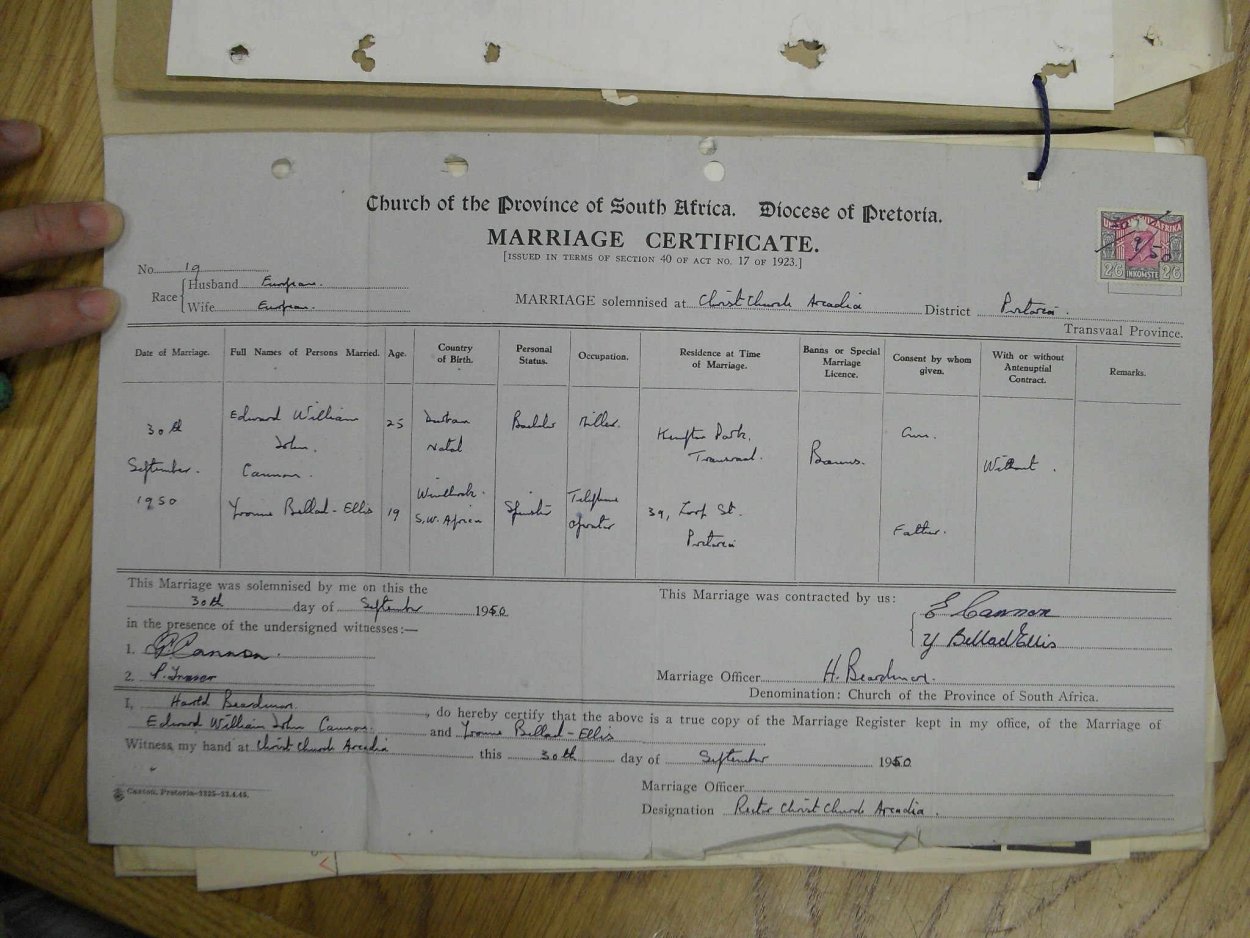 Church of the Province of South Africa. Diocese of Pretoria.
MARRIAGE CERTIFICATE.
[ISSUED IN TERMS OF SECTION 40 OF ACT NO. 17 OF 1923.]
No. 19
Race { Husband European.
Wife European.
MARRIAGE solemnised at Christ Church Arcadia District Pretoria.
Transvaal Province.
INKOMSTE
2/6 2/6
Date of Marriage. Full Names of Persons Married. Age. Country of Birth. Personal Status. Occupation. Residence at Time of Marriage. Banns or Special Marriage Licence. Consent by whom given. With or without Antenuptial Contract. Remarks.
30th Edward William 25 Durban Bachelor Miller. Kempton Park,
John. Natal Transvaal. Banns. Without.
September. Cannon.
1950 Yvonne Bellad-Ellis 19 Windhoek. Spinster Telephone 39, Loop St.
S.W. Africa operator Pretoria Father.
This Marriage was solemnised by me on this the
30th day of September 1950
in the presence of the undersigned witnesses:—
1. Cannon.
2. P. Fraser
This Marriage was contracted by us: { E Cannon
Y BelladEllis
Marriage Officer H. Beardmore.
Denomination: Church of the Province of South Africa.
I, Harold Beardmore, do hereby certify that the above is a true copy of the Marriage Register kept in my office, of the Marriage of
Edward William John Cannon and Yvonne Bellad-Ellis
Witness my hand at Christ Church Arcadia this 30th day of September 1950
Marriage Officer
Designation Rector Christ Church Arcadia.
Caxton, Pretoria—3325—23.4.45.